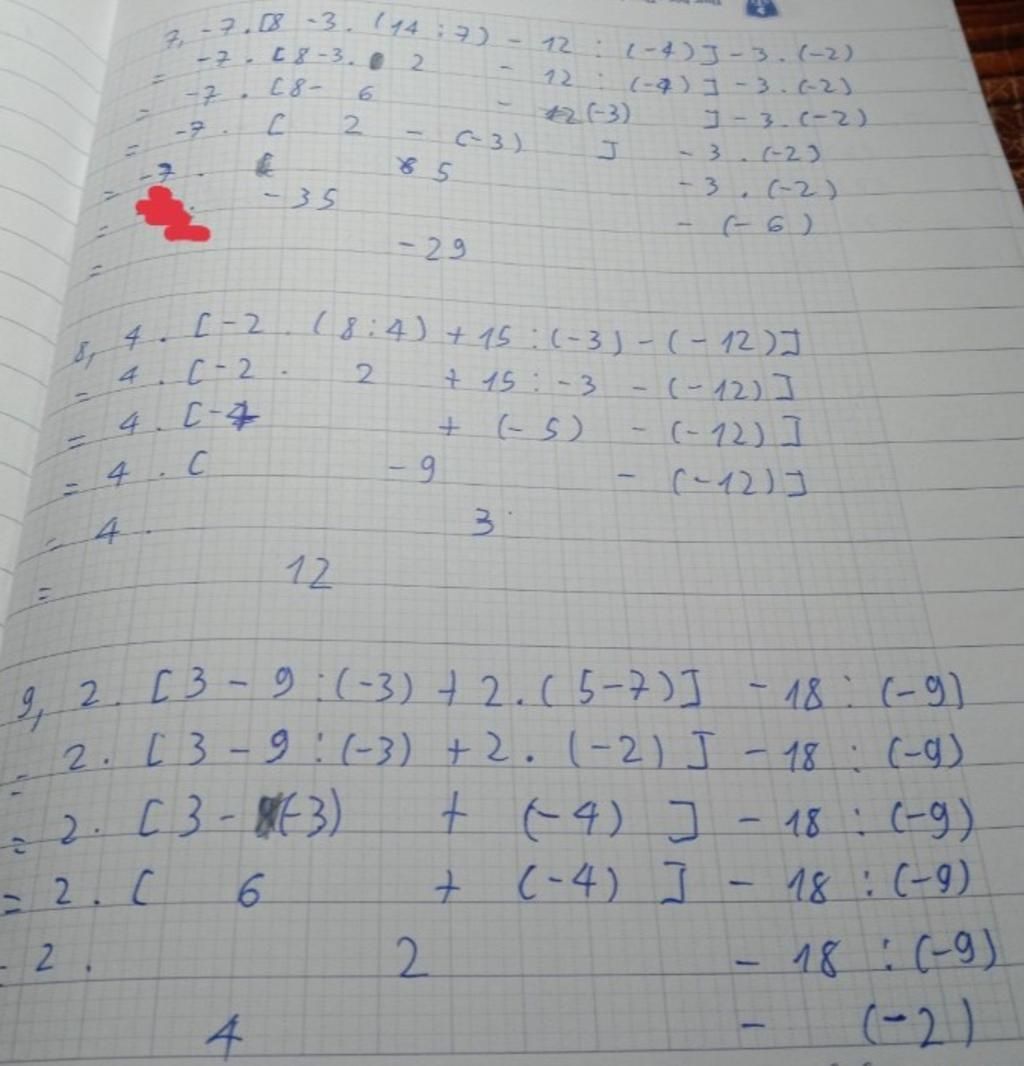 7, -7 . [8 - 3 . (14 : 7) - 12 : (-4)] - 3 . (-2)
= -7 . [8 - 3 . 2 - 12 : (-4)] - 3 . (-2)
= -7 . [8 - 6 - (-3)] - 3 . (-2)
= -7 . [2 - (-3)] - 3 . (-2)
= -7 . 5 - 3 . (-2)
= -35 - (-6)
= -29
8, 4 . [-2 . (8 : 4) + 15 : (-3) - (-12)]
= 4 . [-2 . 2 + 15 : -3 - (-12)]
= 4 . [-4 + (-5) - (-12)]
= 4 . [ -9 - (-12)]
= 4 . 3
= 12
9, 2 . [3 - 9 : (-3) + 2 . (5 - 7)] - 18 : (-9)
= 2 . [3 - 9 : (-3) + 2 . (-2)] - 18 : (-9)
= 2 . [3 - (-3) + (-4)] - 18 : (-9)
= 2 . [6 + (-4)] - 18 : (-9)
- 2 . 2 - 18 : (-9)
4 - (-2)